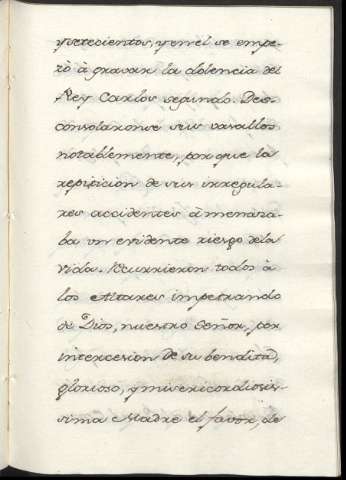 y setecientos, y en el se empe-
zò à gravar la dolencia del
Rey Carlos segundo. Des-
consolaronse sus vasallos
notablemente, por que la
repiticion de sus irregula-
res accidentes àmenaza-
ba un evidente riesgo dela
vida. Recurrieron todos à
los Altares impetrando
de Dios, nuestro Señor, por
intercesion de su bendita,
gloriosa, y misericordiosis-
sima Madre el favor, de